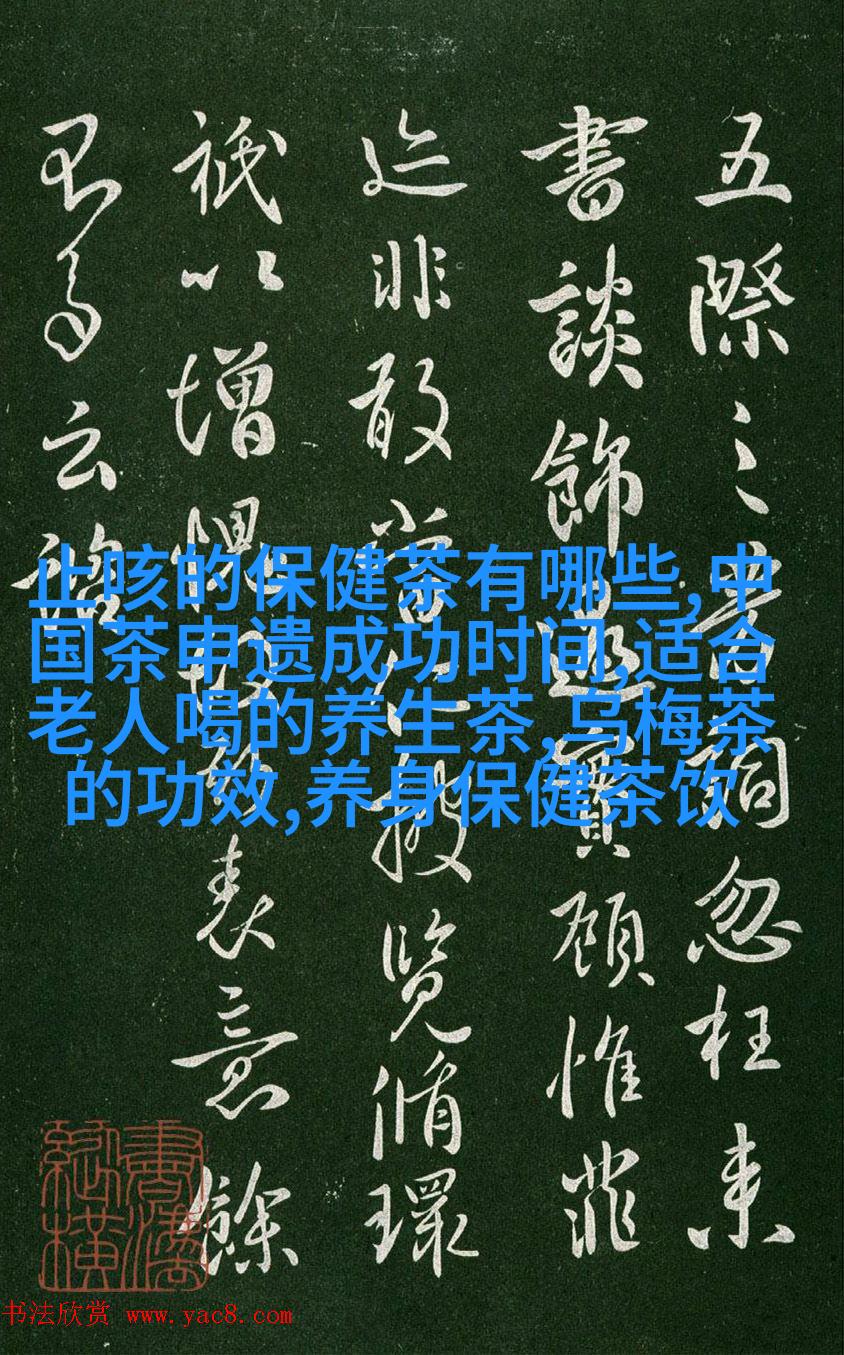 五際之詞忽枉来
書談飾過實顧惟菲
迹非敢當披覧循環
祇以增懼表意餘
云
止咳的保健茶有哪些,中
国茶申遗成功时间,适合
老人喝的养生茶,乌梅茶
的功效,养身保健茶饮
书法欣赏 www.yac8.com